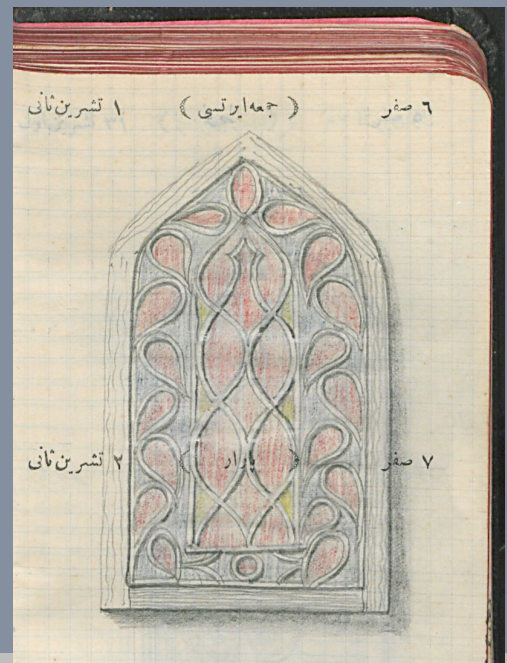 ٦ صفر ﴿ جمعه ايرتسى ﴾ ١ تشرين ثانى
٧ صفر ﴿ پازار ﴾ ٢ تشرين ثانى